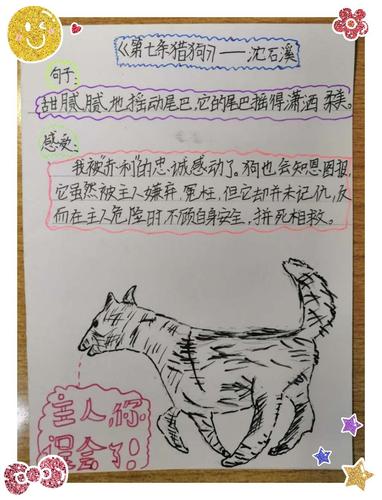 《第七条猎狗》——沈石溪
句子:
甜腻腻地摇动尾巴,它的尾巴摇得潇洒 柔美。
感受:
我被“赤利”的忠诚感动了。狗也会知恩图报,
它虽然被主人嫌弃,冤枉,但它却并未记仇,反
而在主人危险时不顾自身安全,拼死相救。
主人,你
误会了!